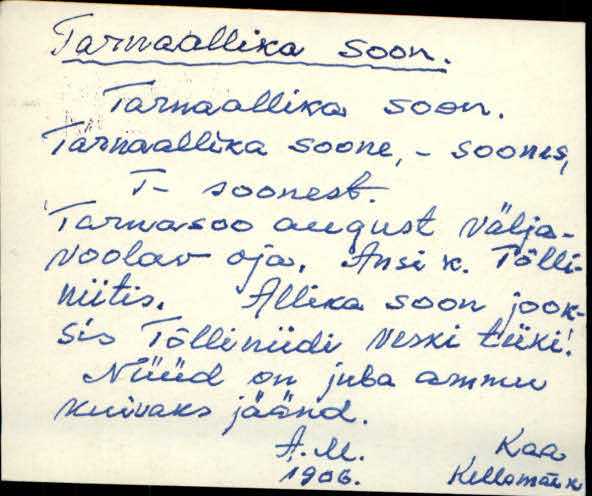 Tarnaallika soon.
Tarnaallika soon.
Tarnaallika soone, - soones,
T- soonest.
Tarnasoo august välja-
voolav oja. Ansi k. Tõlli-
niitis. Allika soon jook-
sis Tõlliniidi veski tiiki!
Nüüd on juba ammu
kuivaks jäänd.
A.M. Kaa
1906. Kellamäe k